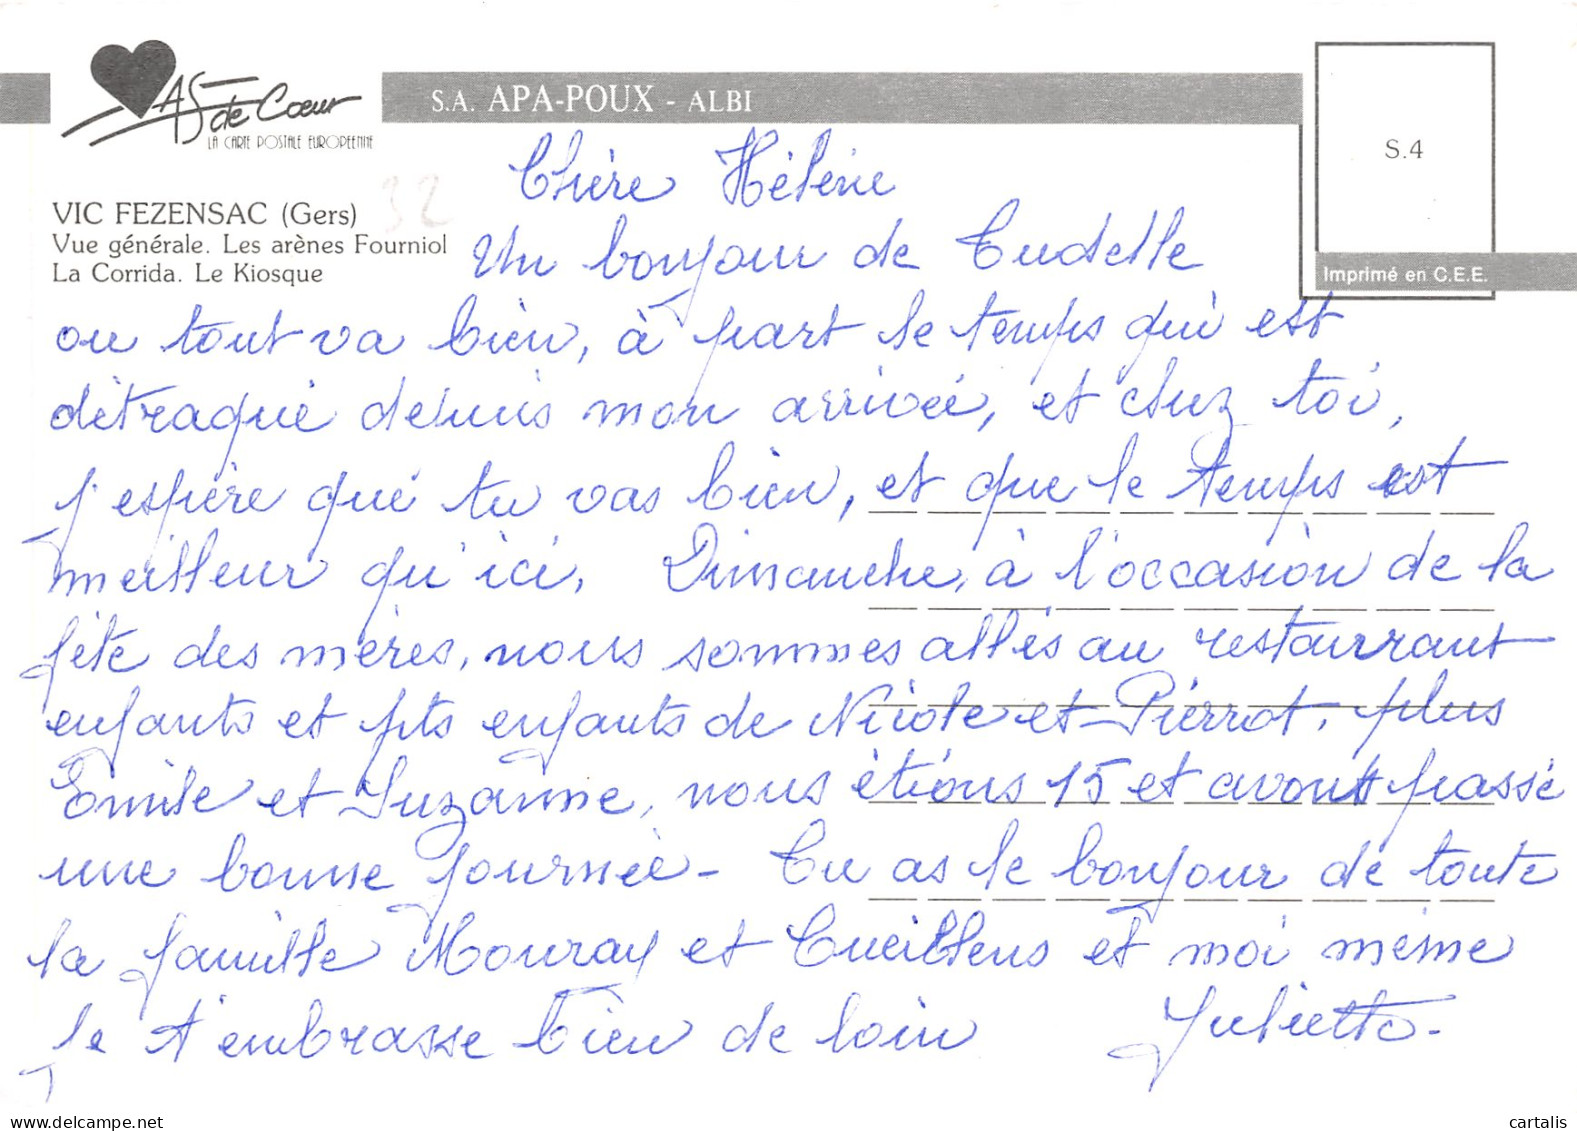 As de Cœur
LA CARTE POSTALE EUROPÉENNE
S.A. APA-POUX - ALBI
S.4
Imprimé en C.E.E.
VIC FEZENSAC (Gers)
Vue générale. Les arènes Fourniol
La Corrida. Le Kiosque
32
Chère Hélène
Un bonjour de Tudelle
ou tout va bien, à part le temps qui est
détraqué depuis mon arrivée, et chez toi,
j'espère que tu vas bien, et que le temps est
meilleur qu'ici, Dimanche, à l'occasion de la
fête des mères, nous sommes allés au restaurrant
enfants et pts enfants de Nicole et Pierrot, plus
Emile et Suzanne, nous étions 15 et avons passé
une bonne journée - Tu as le bonjour de toute
la famille Mouray et et moi même
je t'embrasse bien de loin Juliette -
cartalis